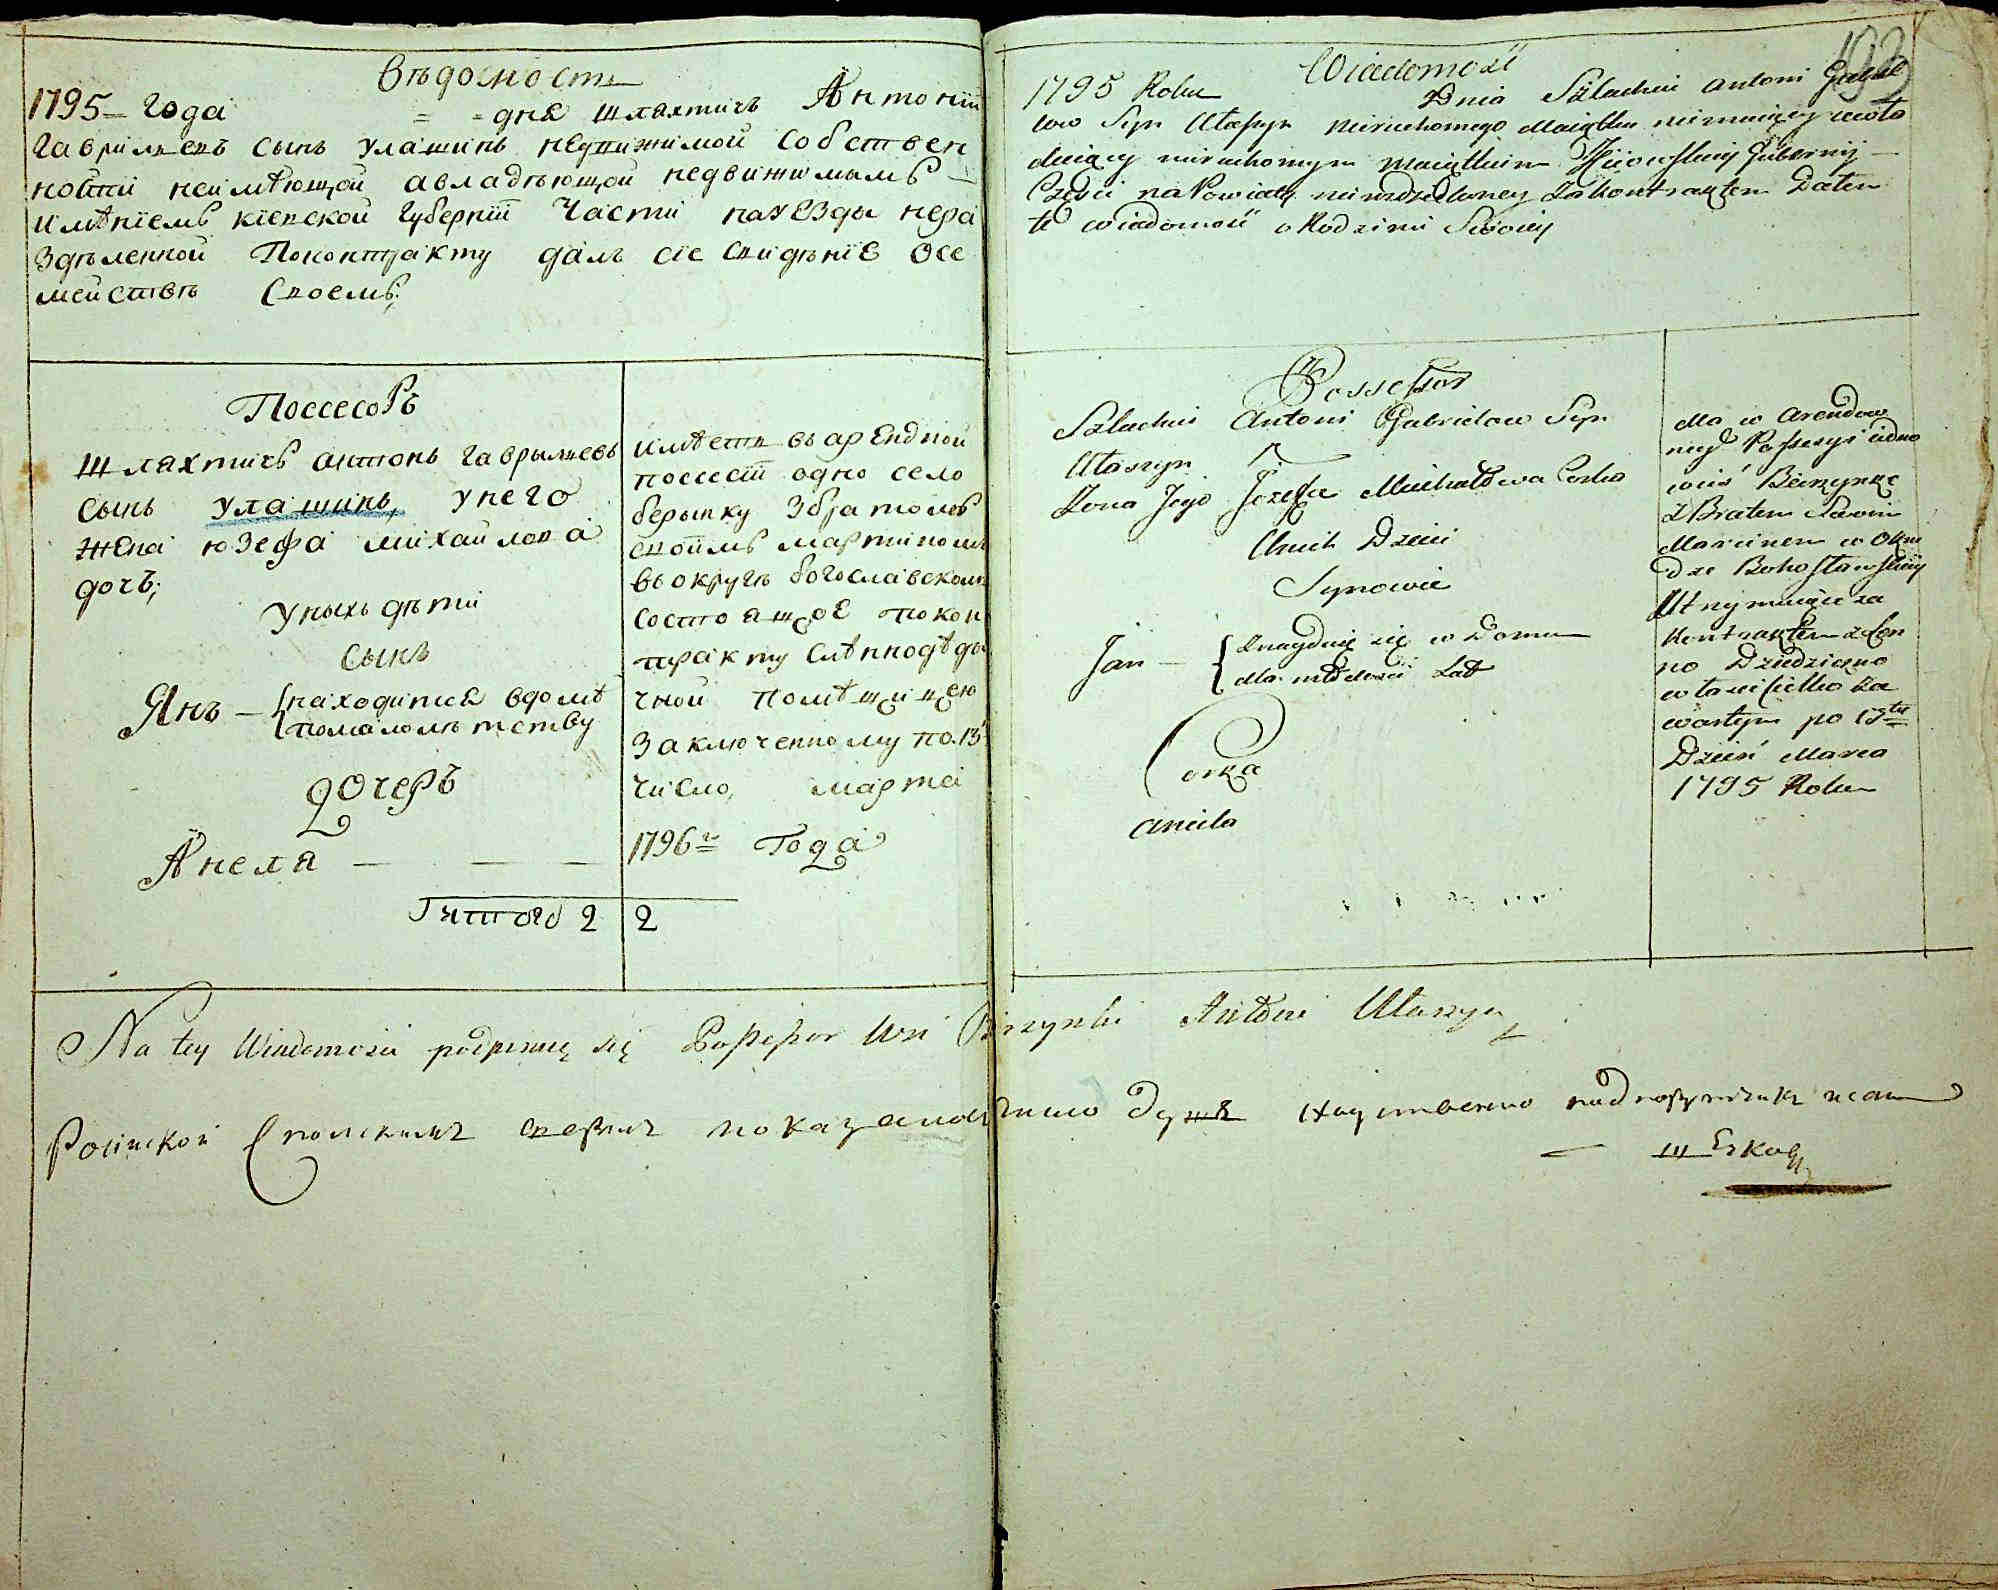 Вѣдомость
1795 Года = = дня шляхтичъ Антонiй
Гавриловъ сынъ Улашинъ недвижимой собствен
ности неимѣющой авладѣющой недвижимымъ
имѣнiемъ кiевской губернiи Части науезды нера
здѣленной Поконтракту далъ сiе свидѣнiе Осе
мействѣ своемъ;
Поссесоръ
шляхтичъ антонъ гаврыловъ
сынъ улашинъ, унего
жена юзефа михайлова
дочъ;
Уныхъ дѣти
сынъ
Янъ — находится вдомѣ
помаломлѣтству
Дочеръ
Анеля — — —
Итого 2
имѣетъ въ арендной
поссесiи одно село
берынку Збратомъ
своiмъ мартиномъ
въ округѣ богославскомъ
состоящое покон
тракту
чной помѣщицею
Заключенному по 13
число, марта
1796го Года
2
Wiadomość
1795 Roku Dnia Szlachcic Antoni Gabrie
low Syn Ułaszyn nieruchomego Maiątku niemaiący wło
daiący nieruchomym maiątkiem Kijowskiey Gubernij
Części na Powiaty nierozdzieloney Za kontraktem Datem
tę wiadomość o Rodzinie Swoiey
Possessor
Szlachcic Antoni Gabrielow Syn
Ułaszyn
Żona Jego Józefa Michałowa Corka
U nich Dzieci
Synowie
Jan — Znayduie się w Domu
dla młodości Lat
Corka
Aniela
Ma w arendow
ney Possesyi iedno
wieś Bierzynkę
z Bratem Swoim
Marcinem w Okru
dze Bohosławskiey
Utrzymuiące za
Kontraktem z
no Dziedziczno
właścicielko za
wartym po 13ty
Dzień Marca
1795 Roku
Na tey Wiadomości podpisuię się Possessor Wsi Birzynki Antoni Ułaszyn
Росiйской Спольскимъ показано